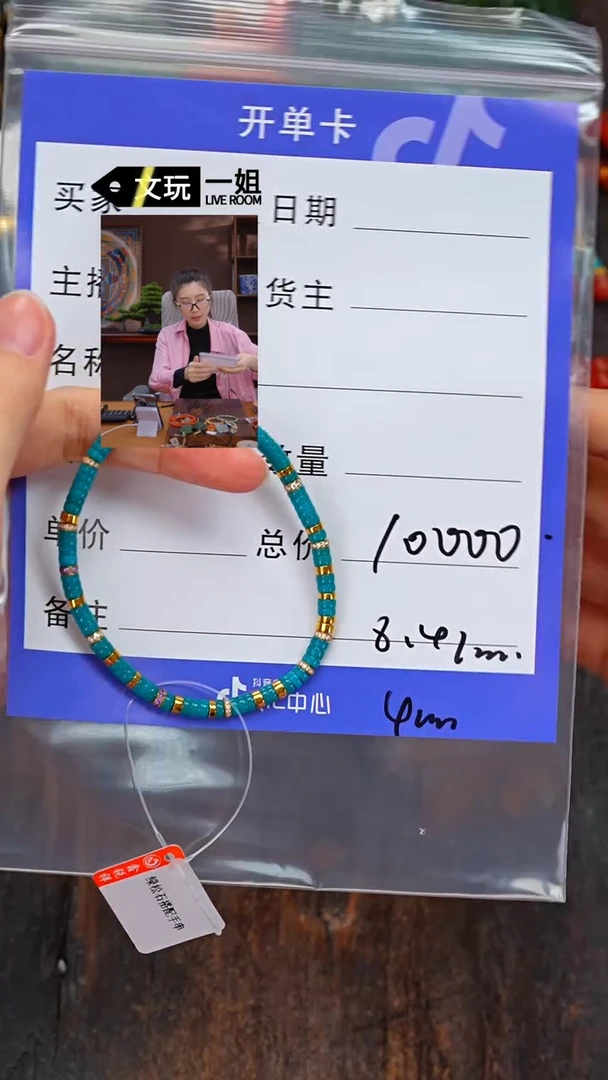 开单卡
买家
文玩 一姐
LIVE ROOM
日期
主播
货主
名称
数量
单价
总价 10000
备注
8.41mm.
4mm
中心
绿松石搭配手串